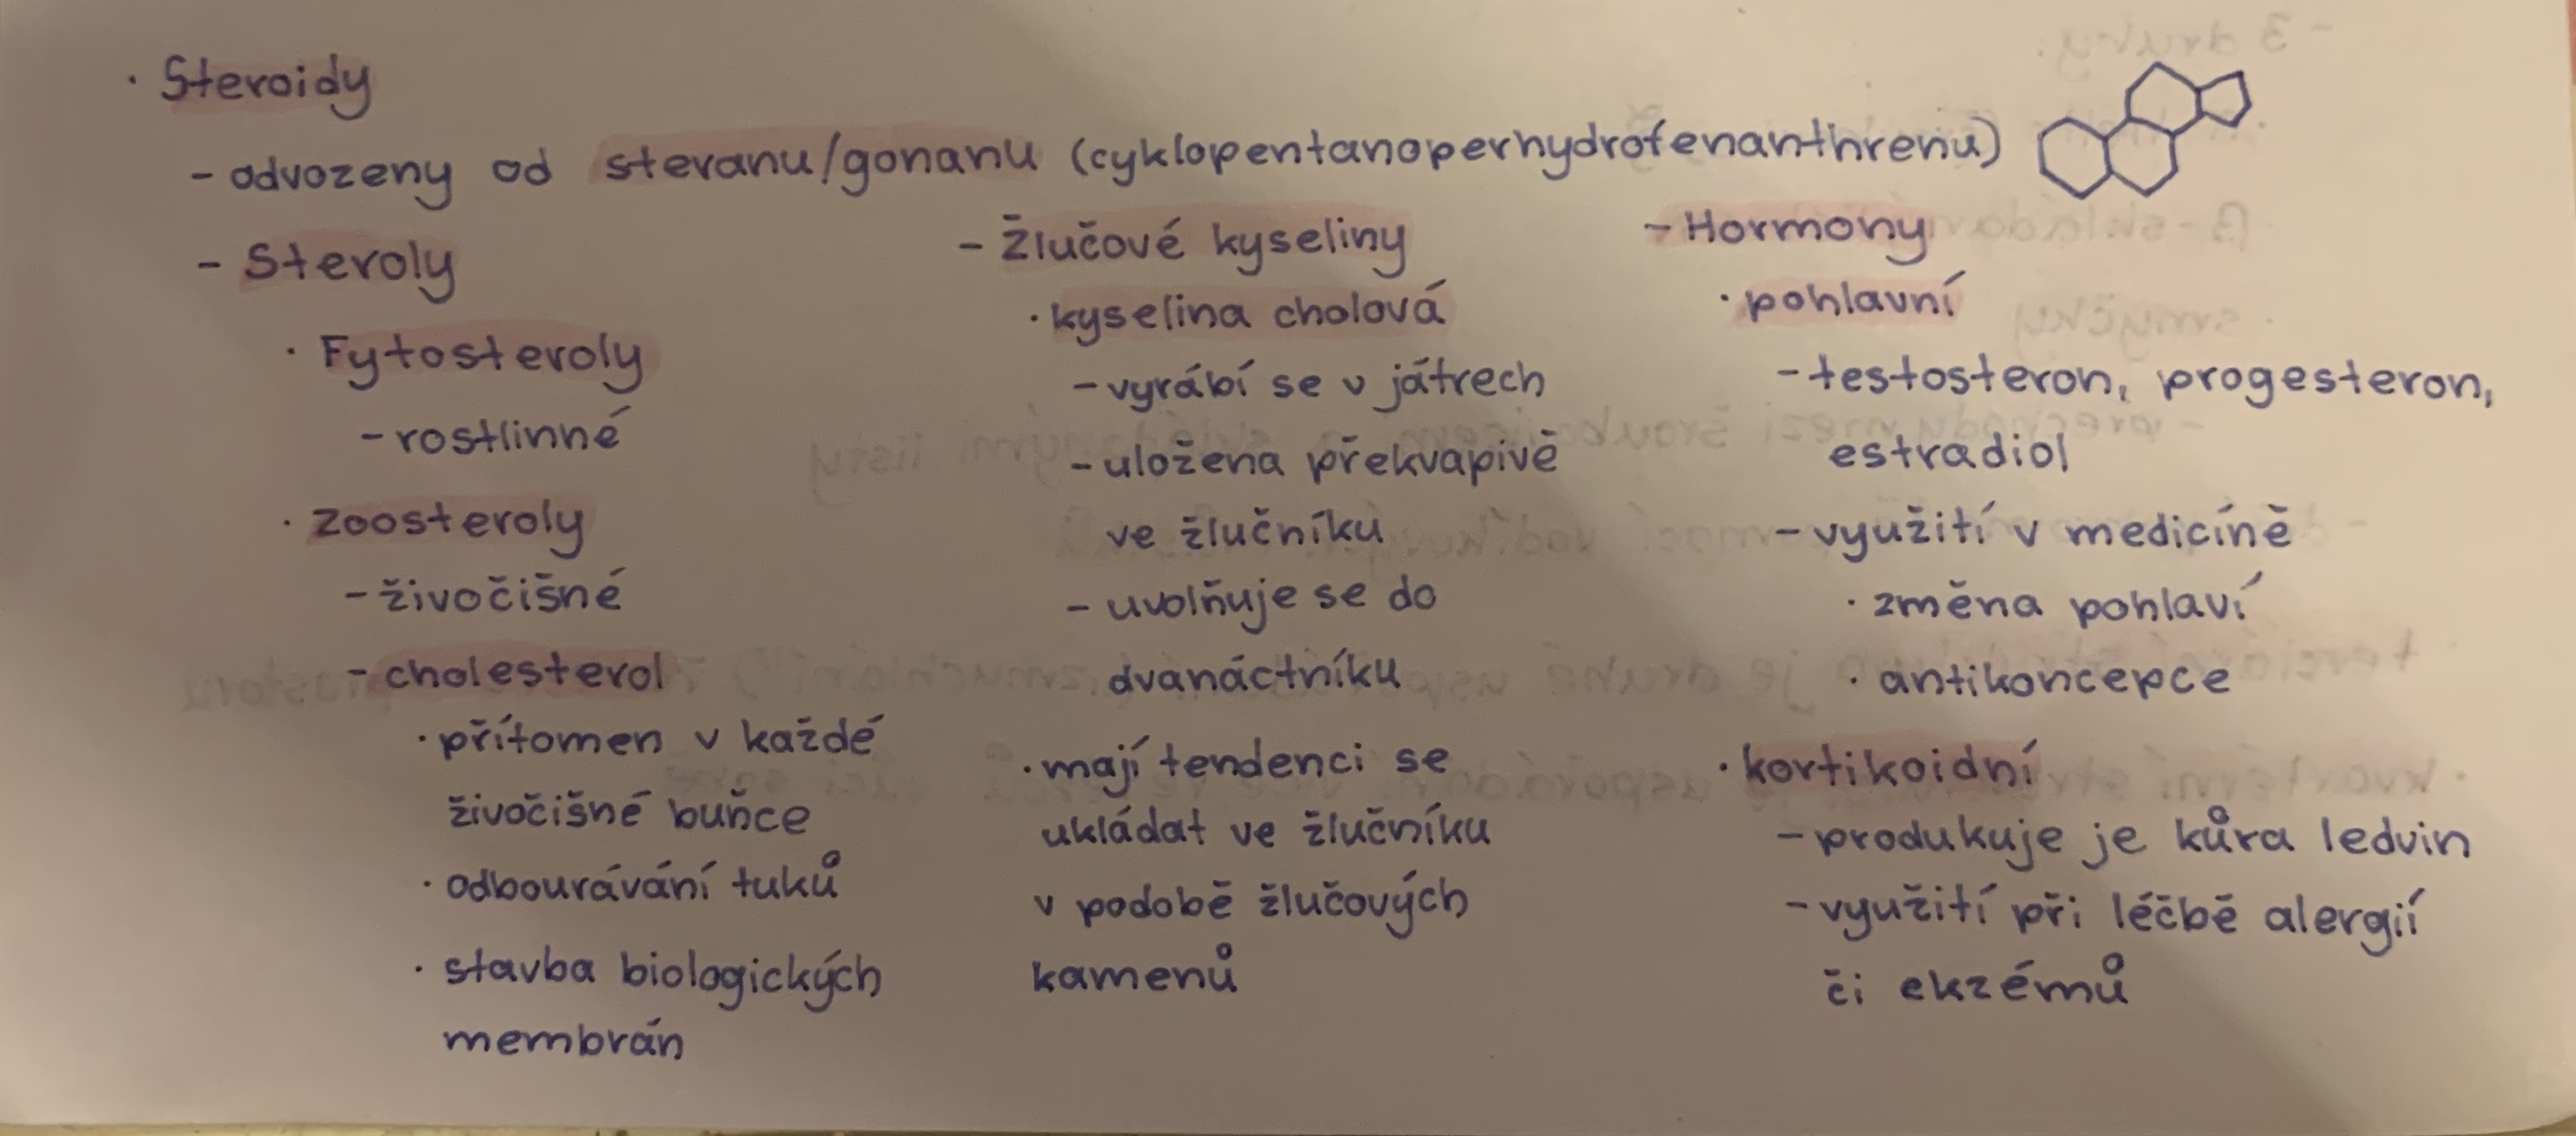 · Steroidy
- odvozeny od steranu/gonanu (cyklopentanoperhydrofenanthrenu)
- Steroly
· Fytosteroly
- rostlinné
· zoosteroly
- živočišné
- cholesterol
· přítomen v každé
živočišné buňce
· odbourávání tuků
· stavba biologických
membrán
- Žlučové kyseliny
· kyselina cholová
- vyrábí se v játrech
- uložena překvapivě
ve žlučníku
- uvolňuje se do
dvanáctníku
· mají tendenci se
ukládat ve žlučníku
v podobě žlučových
kamenů
- Hormony
· pohlavní
- testosteron, progesteron,
estradiol
- využití v medicíně
· změna pohlaví
· antikoncepce
· kortikoidní
- produkuje je kůra ledvin
- využití při léčbě alergií
či ekzémů